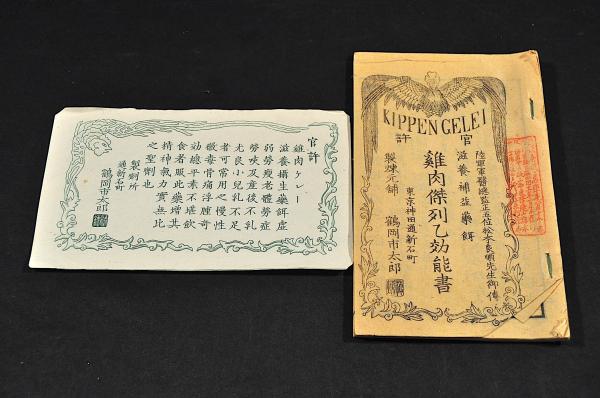 官許
雞肉ケレー
滋養攝生藥餌虚
弱勞瘦老體勞症
勞咳及産後不乳
尤良小兒乳不足
者可常用之慢性
黴毒骨痛浮腫奇
効總平素不堪飲
食者服此藥增其
精神氣力實無比
之聖劑也
製劑所
通新石町
鶴岡市太郎
KIPPENGELEI
官許
陸軍軍醫總監正五位松本良順先生御傳
滋養補益藥餌
雞肉傑列乙効能書
東京神田通新石町
製煉元舗 鶴岡市太郎